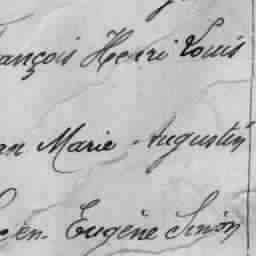 ançois Henri Louis
an Marie Augustin
cien Eugène Simon